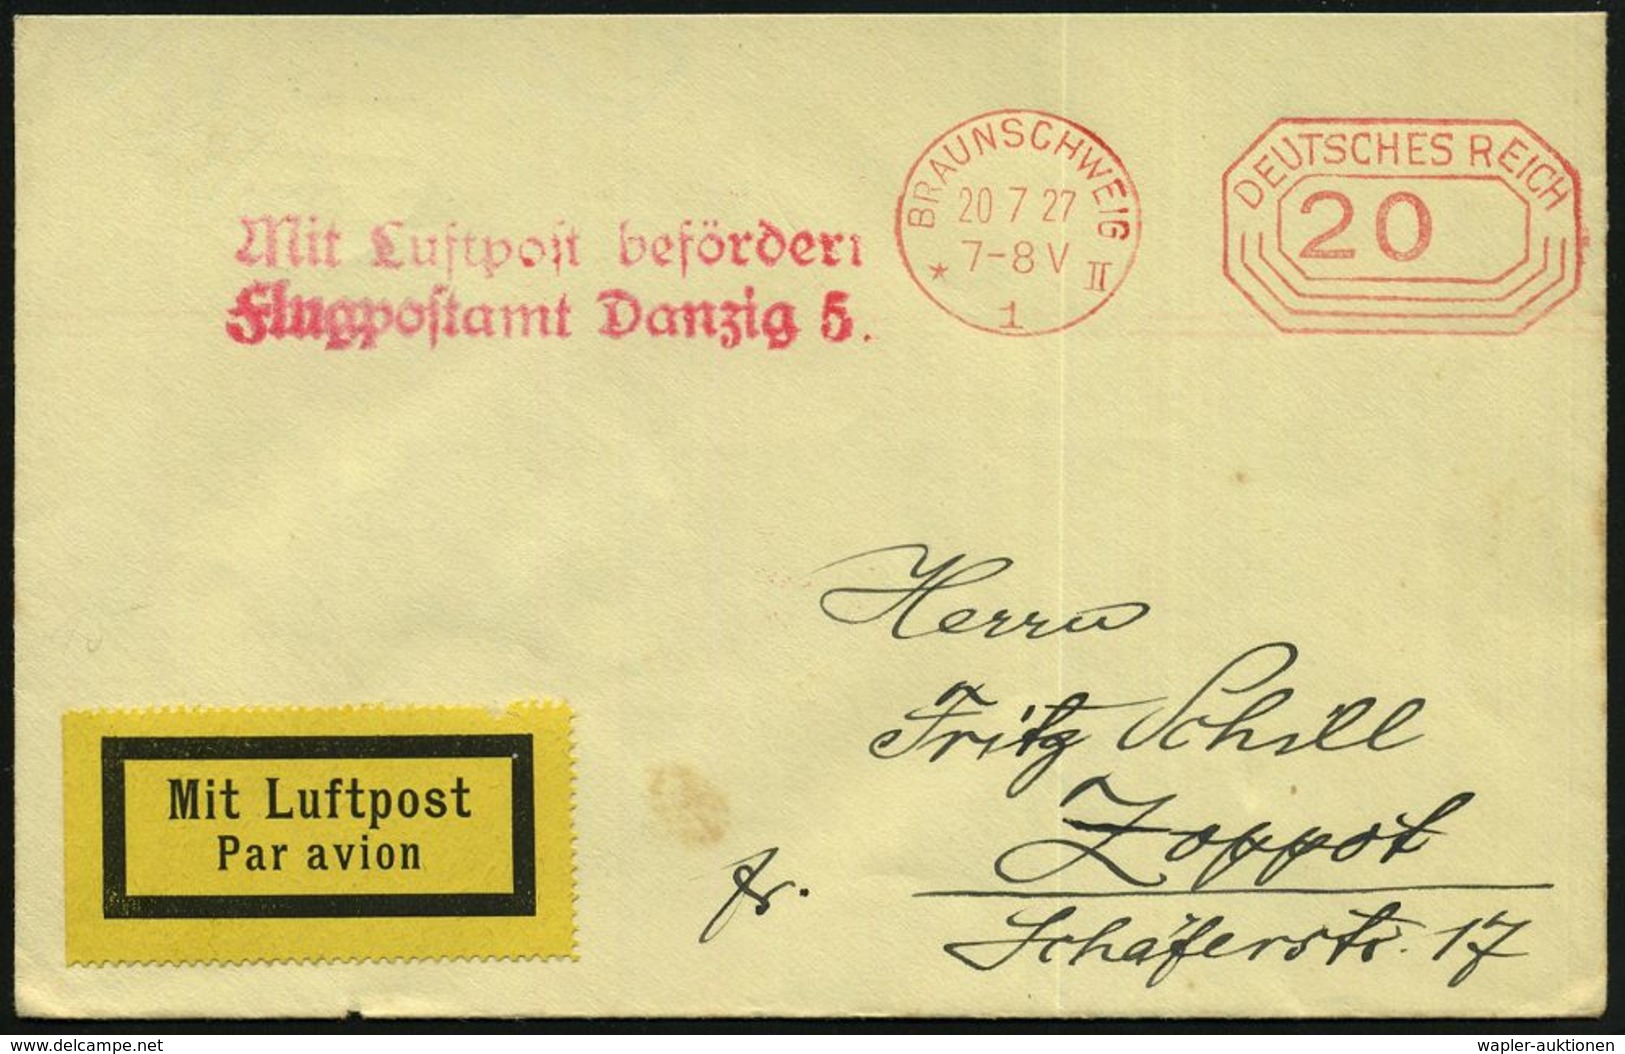 Mit Luftpost befördert
Flugpostamt Danzig 5.
BRAUNSCHWEIG
20 7 27
7-8 V
* II
1
DEUTSCHES REICH
20
Herrn
Fritz Schill
Zoppot
fr.
Schäferstr. 17
Mit Luftpost
Par avion
www.delcampe.net
wapler-auktionen